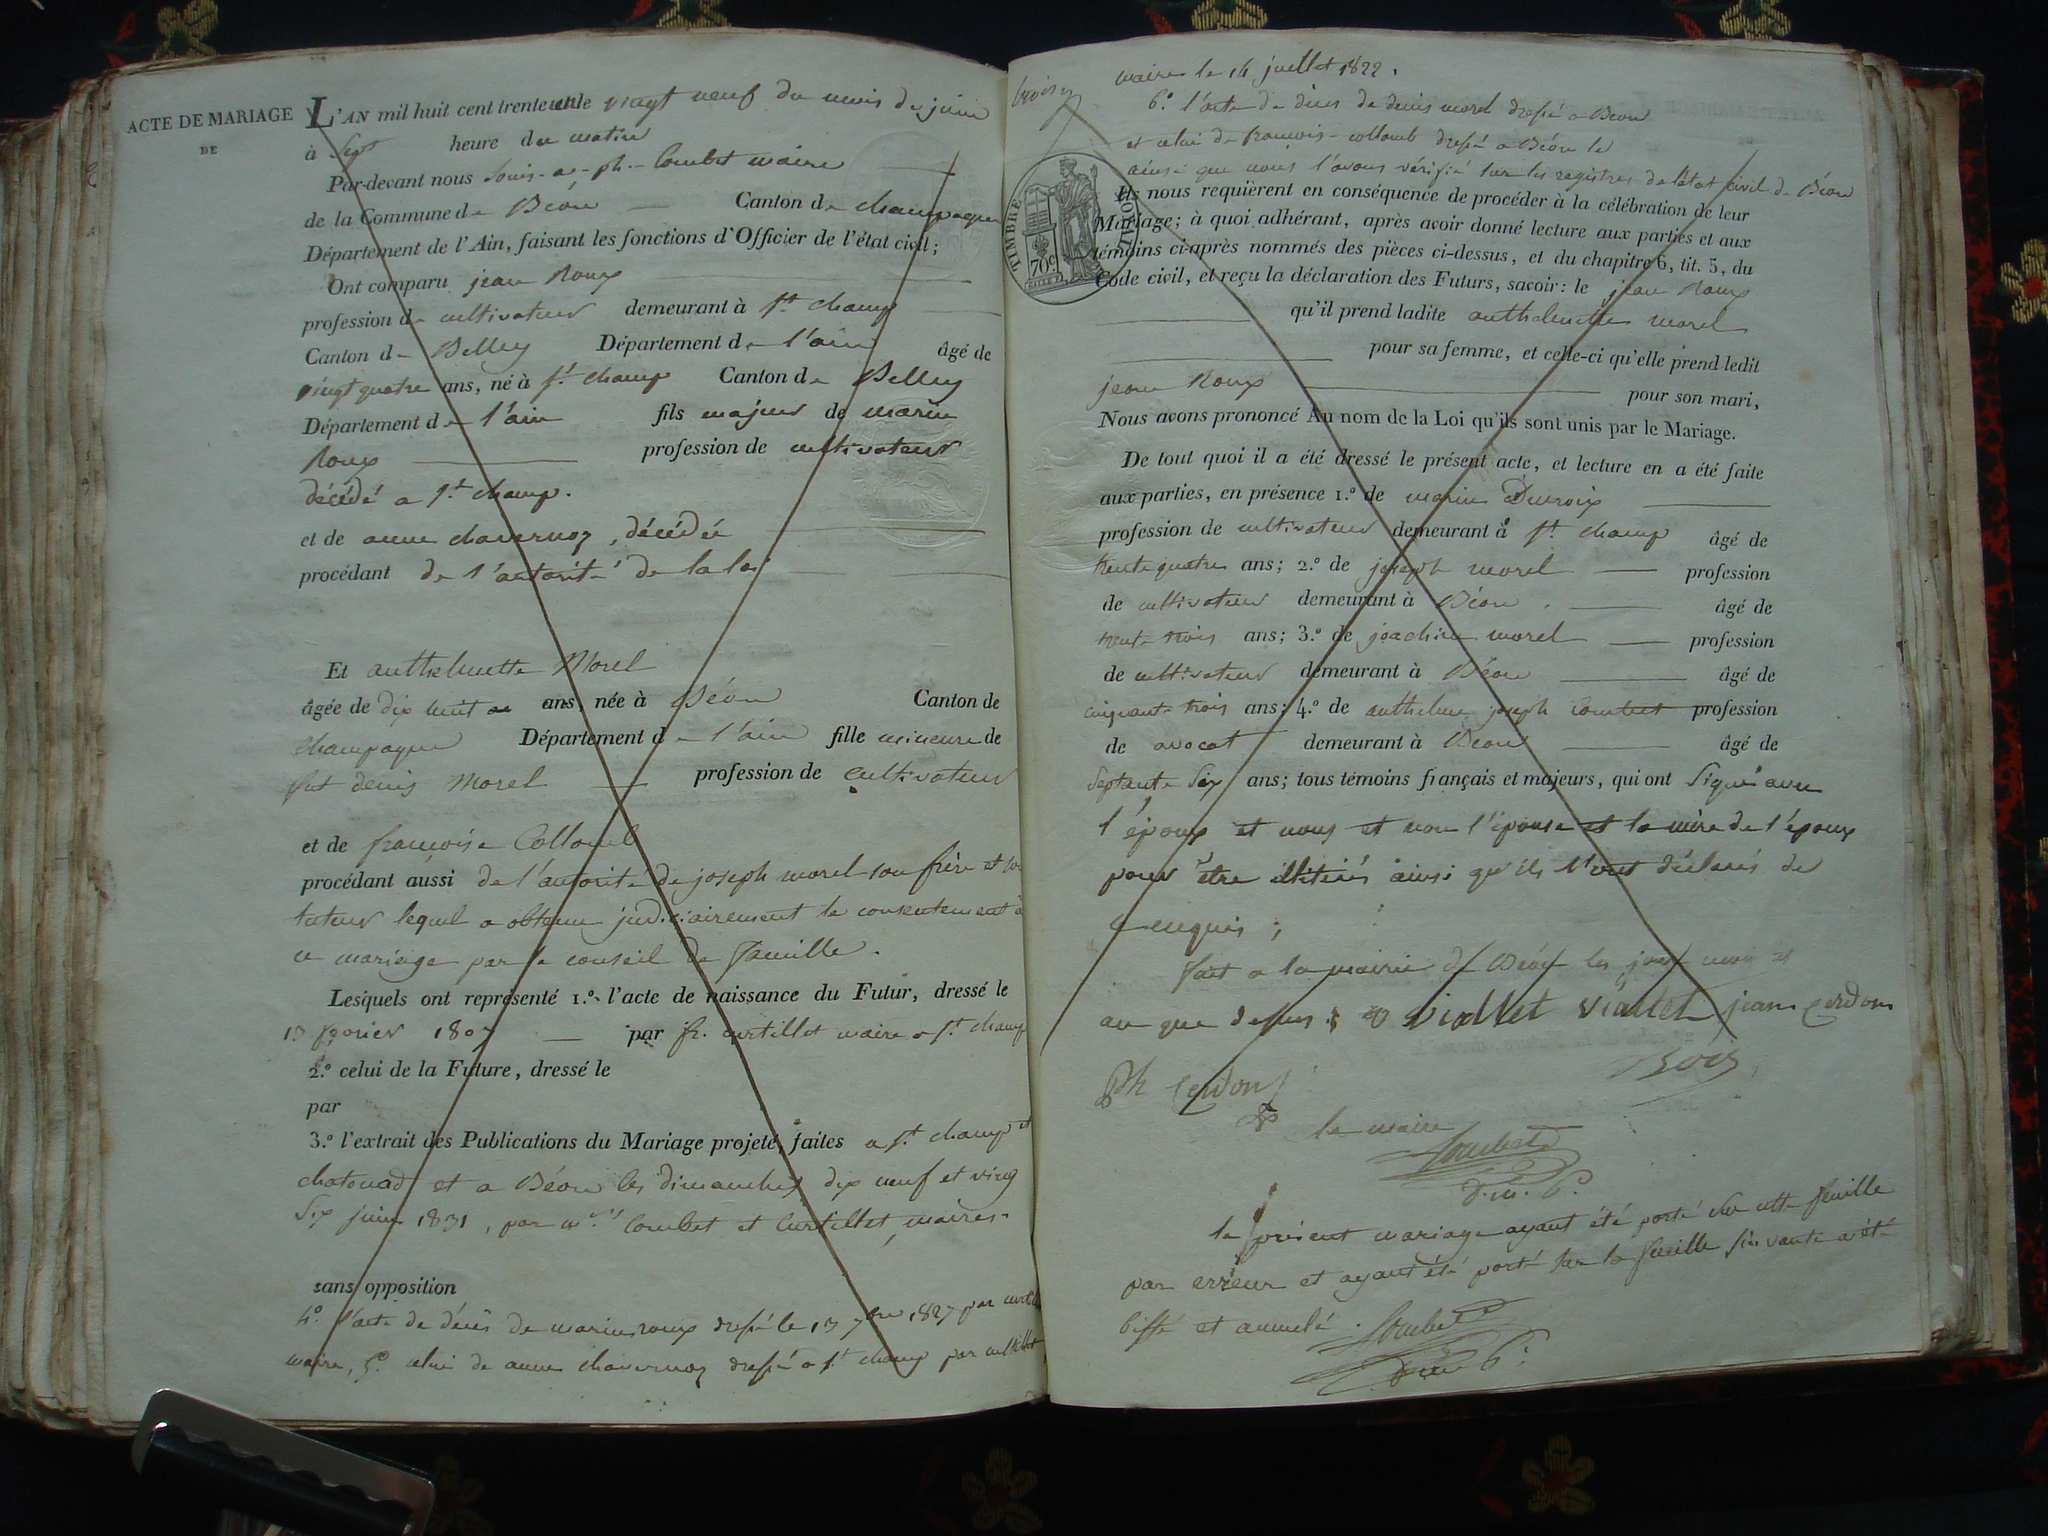 ACTE DE MARIAGE
DE
L'AN mil huit cent trente un le vingt neuf du mois de juin
à Sept heure du matin
Par-devant nous Louis-as-ph- Combet maire
de la Commune de Béon Canton de champagne
Département de l'Ain, faisant les fonctions d'Officier de l'état civil;
Ont comparu jean Roux
profession de cultivateur demeurant à St champ
Canton de Belley Département de l'ain âgé de
vingt quatre ans, né à St champ Canton de Belley
Département de l'ain fils majeur de marin
Roux profession de cultivateur
décédé a St champ.
et de anne chavernoz, décédée
procédant de l'autorité de la loi
Et anthelmette Morel
âgée de dix huit ans, née à Béon Canton de
Champagne Département de l'ain fille mineure de
fut denis Morel profession de cultivateur
et de françoise Collomb
procédant aussi de l'autorité de joseph morel son frère et son
tuteur lequel a obtenu judiciairement le consentement à
ce mariage par le conseil de famille.
Lesquels ont représenté 1.º l'acte de naissance du Futur, dressé le
13 fevrier 1807 par fr. curtillet maire a St champ
2.º celui de la Future, dressé le
par
3.º l'extrait des Publications du Mariage projeté, faites a St champ et
chatonod et a Béon les dimanches dix neuf et ving
Six juin 1831, par mrs Combet et Curtillet, maires
sans opposition
4º. l'acte de décès de marin roux dressé le 13 7bre 1827 par curtillet
maire, 5º. celui de anne chavernoz dressé a St champ par curtillet
maire le 14 juillet 1822.
6º. l'acte de décès de denis morel dressé a Béon
et celui de françoise collomb dressé a Béon le
ainsi que nous l'avons vérifié sur les registres de l'état civil de Béon
TIMBRE ROYAL
70c
Ils nous requièrent en conséquence de procéder à la célébration de leur
Mariage; à quoi adhérant, après avoir donné lecture aux parties et aux
témoins ci-après nommés des pièces ci-dessus, et du chapitre 6, tit. 5, du
Code civil, et reçu la déclaration des Futurs, savoir: le jean Roux
qu'il prend ladite anthelmette morel
pour sa femme, et celle-ci qu'elle prend ledit
jean Roux pour son mari,
Nous avons prononcé Au nom de la Loi qu'ils sont unis par le Mariage.
De tout quoi il a été dressé le présent acte, et lecture en a été faite
aux parties, en présence 1.º de marin
profession de cultivateur demeurant à St champ âgé de
trente quatre ans; 2.º de joseph morel profession
de cultivateur demeurant à Béon. âgé de
trente trois ans; 3.º de joachim morel profession
de cultivateur demeurant à Béon âgé de
cinquante trois ans; 4.º de anthelme joseph Combet profession
de avocat demeurant à Béon âgé de
Septante Six ans; tous témoins français et majeurs, qui ont Signé avec
l'époux et nous et non l'épouse et la mère de l'époux
pour être illitérés ainsi qu'ils l'ont déclarés de
ce enquis;
fait a la mairie de Béon les jour mois et
an que dessus; viallet viallet jean Cerdon
Ph Cerdon
le maire
Combet
D. m. P.
le présent mariage ayant été porté sur cette feuille
par erreur et ayant été porté sur la feuille suivante a été
biffé et annulé. Combet